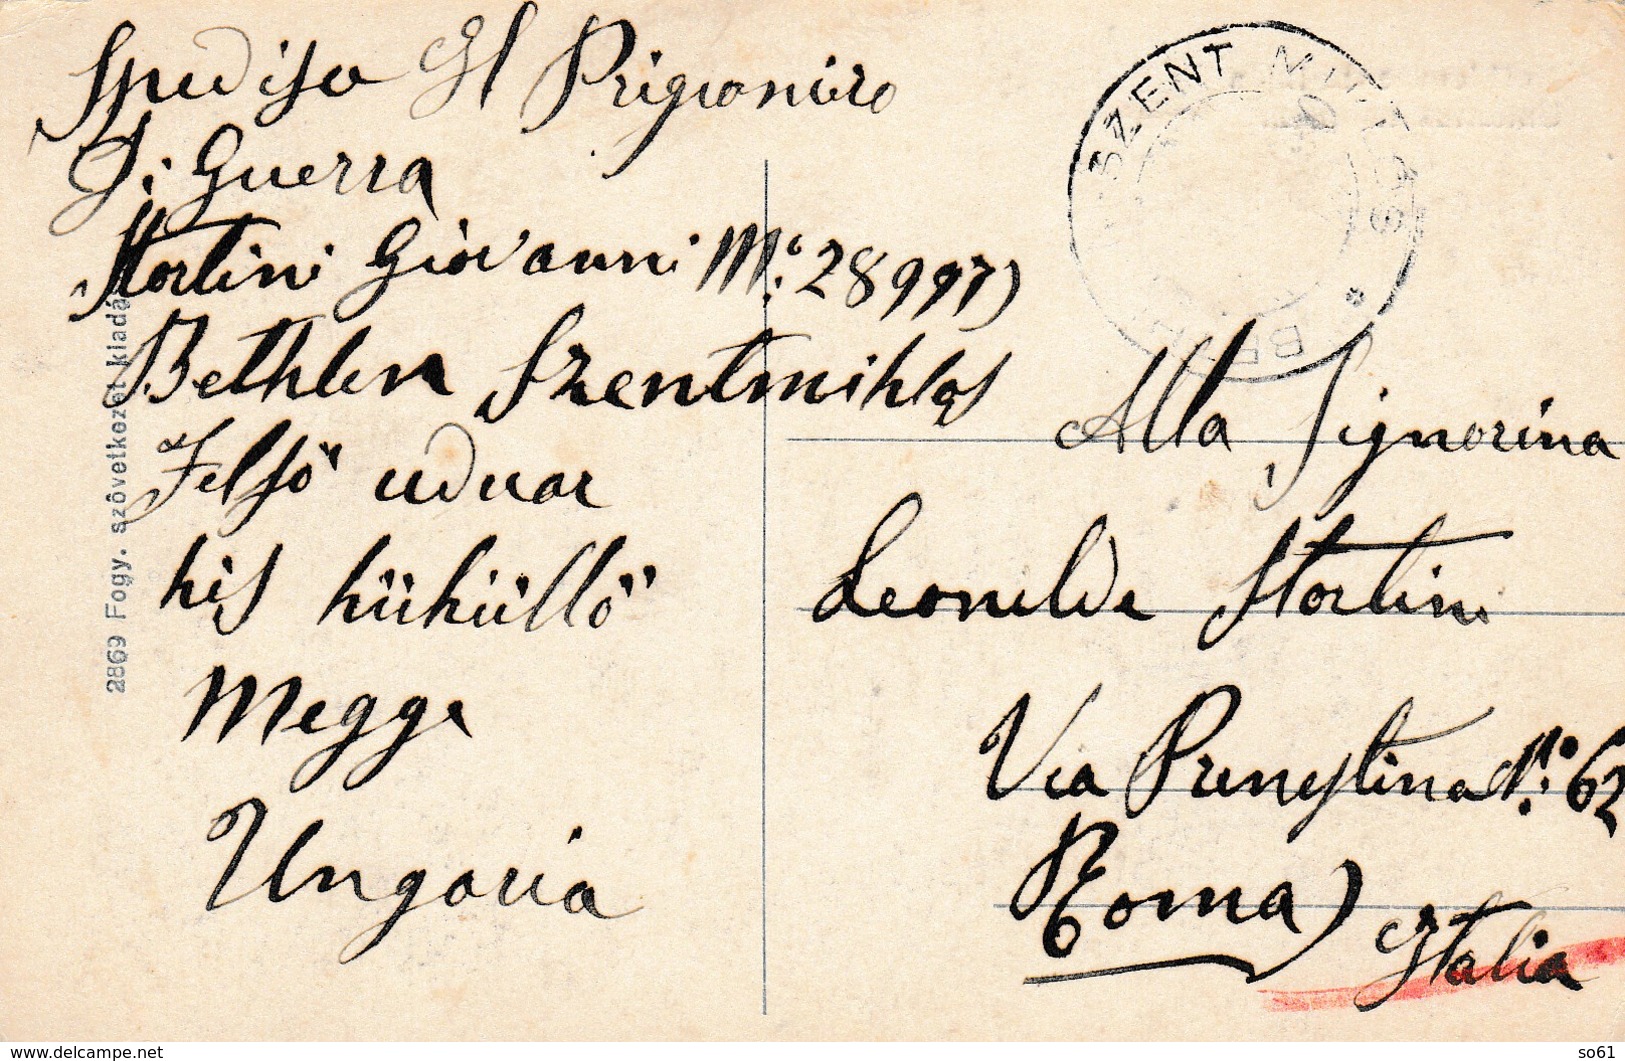 Spedisa Il Prigioniero
Di Guerra
Stortini Giovanni M: 28997)
Bethlen Szentmihlas
Felsö uduar
kis küküllö
Megge
Ungaria
2869 Fogy. szövetkezet kiadá
SZENT MIKLÓS
Alla Signorina
Leonilde Stortini
Via Prenestina N: 62
Roma)
Italia
www.delcampe.net
so61